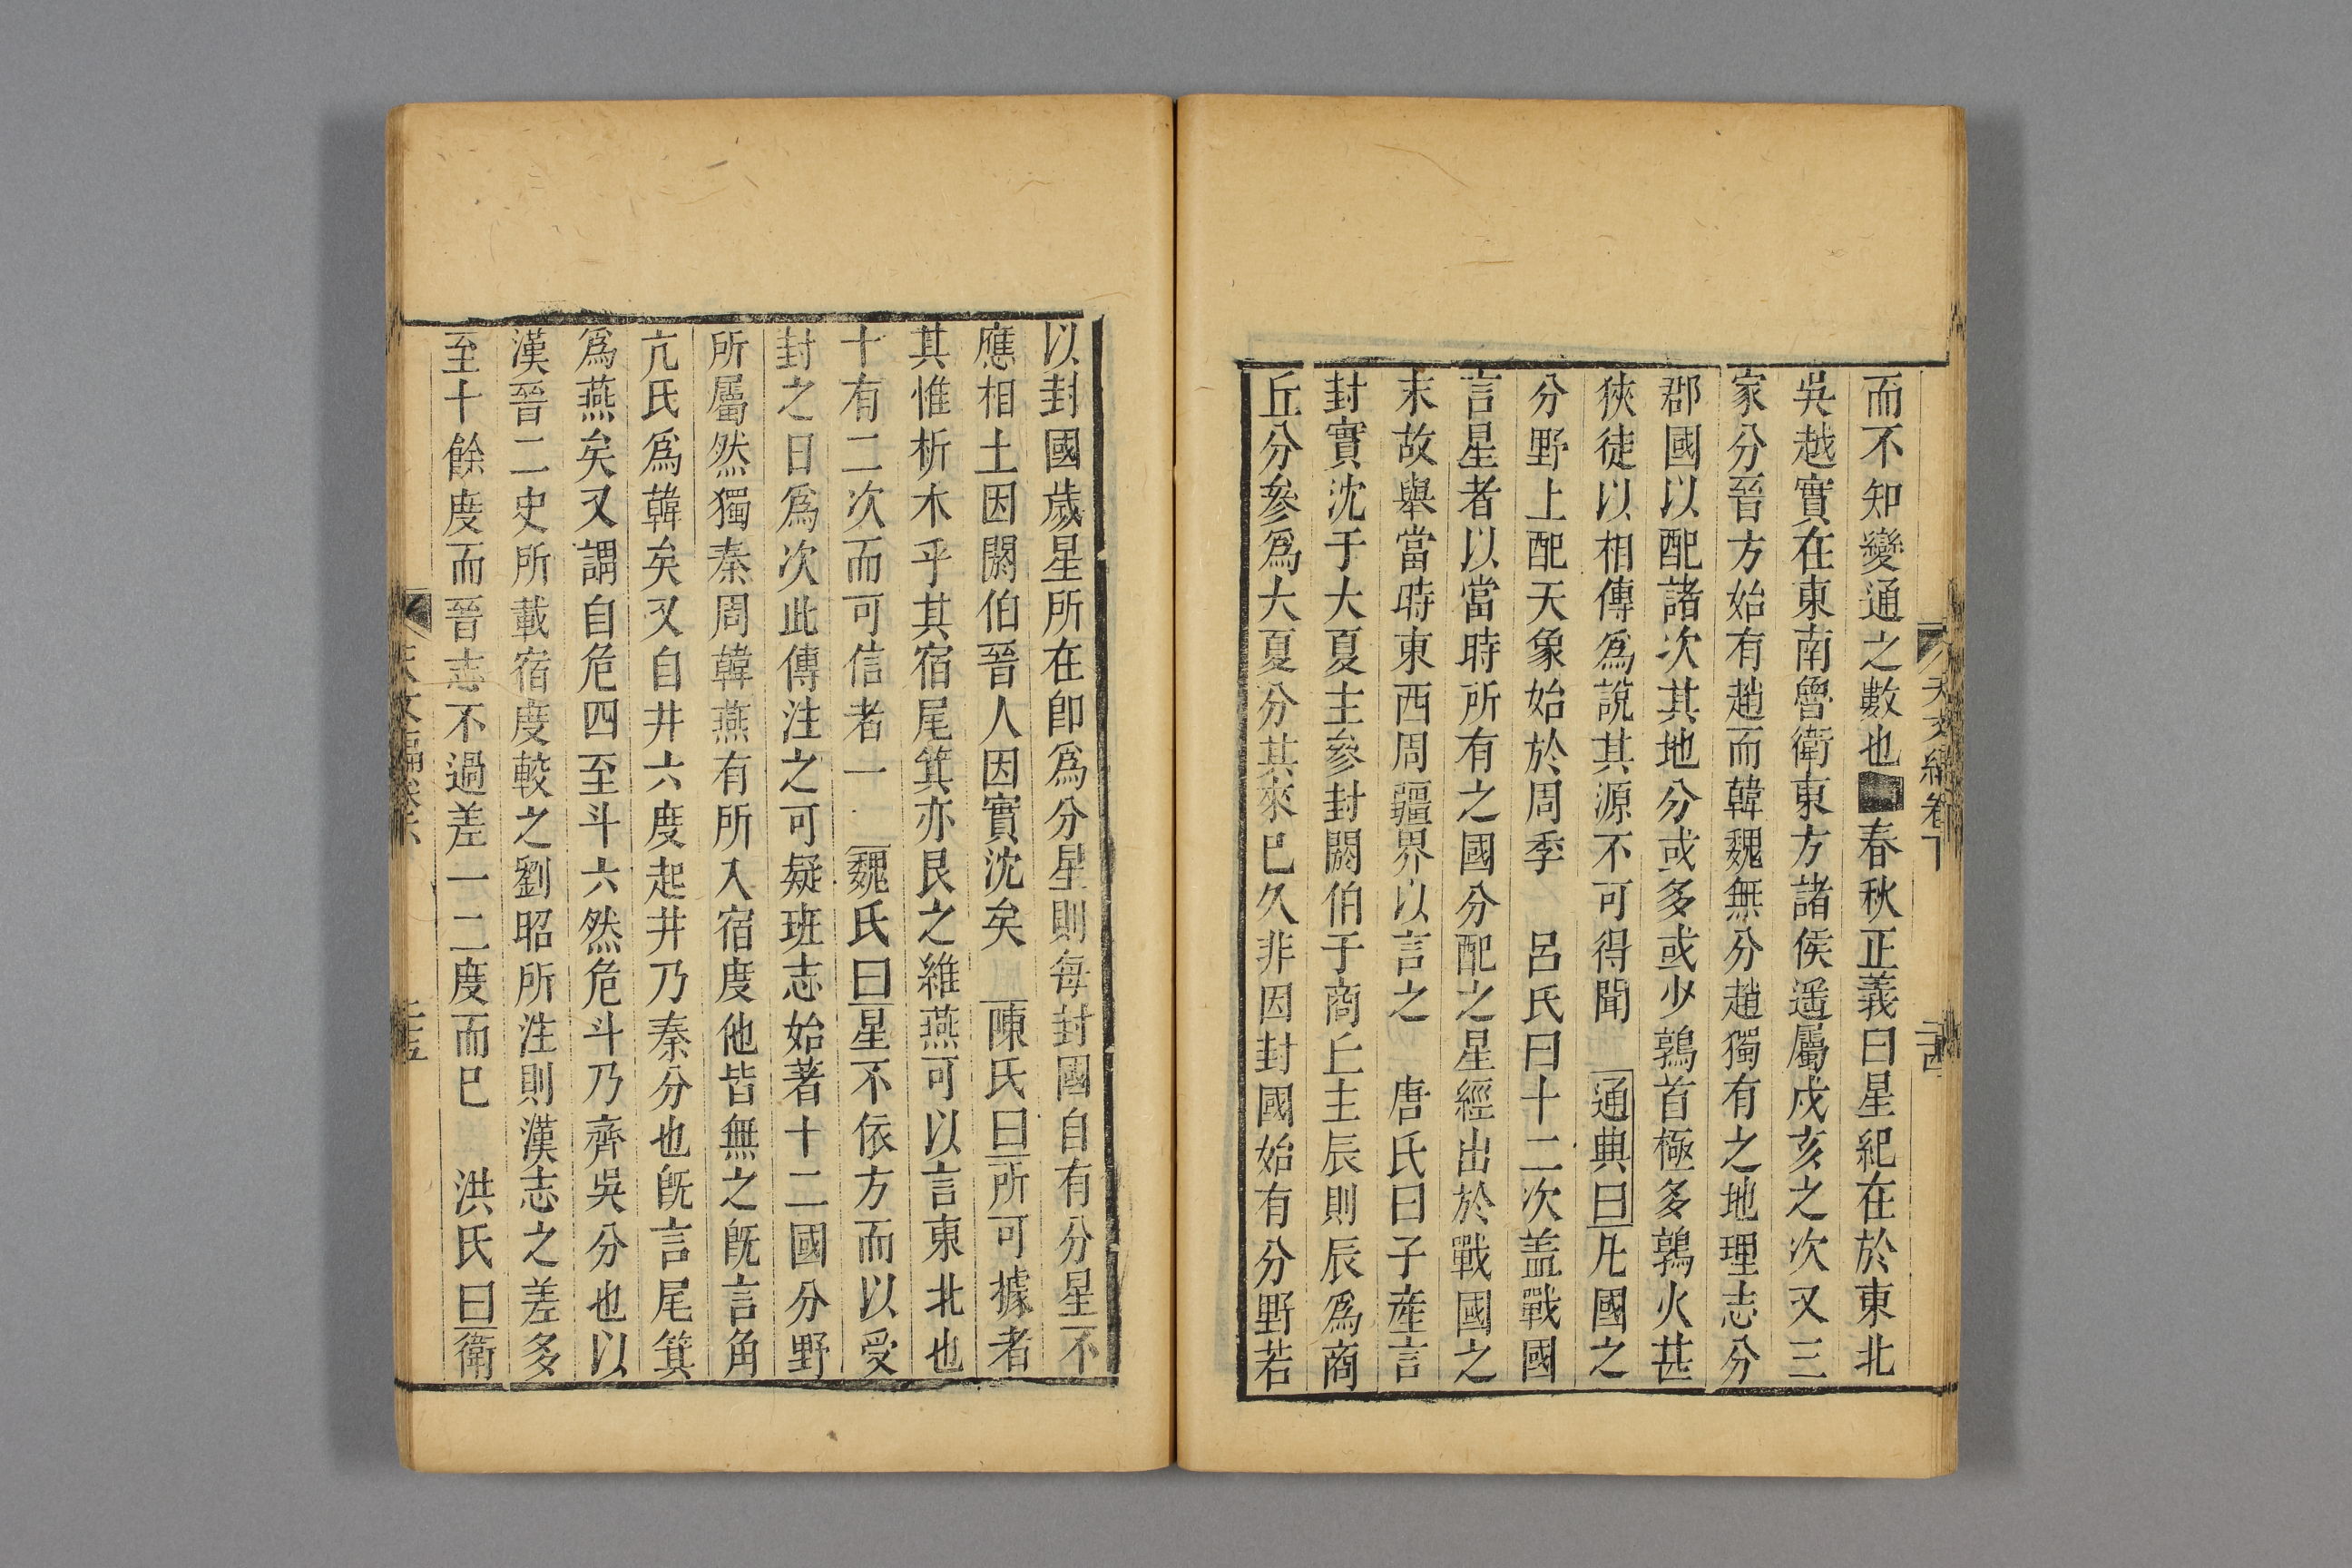 而不知變通之數也春秋正義曰星紀在於東北
吳越實在東南魯衛東方諸侯遥屬戍亥之次又三
家分晉方始有趙而韓魏無分趙獨有之地理志分
郡國以配諸次其地分或多或少鶉首極多鶉火甚
狹徒以相傳爲說其源不可得聞 通典曰凡國之
分野上配天象始於周季 呂氏曰十二次盖戰國
言星者以當時所有之國分配之星經出於戰國之
末故舉當時東西周疆界以言之 唐氏曰子産言
封實沈于大夏主參封閼伯于商丘主辰則辰爲商
丘分參爲大夏分其來巳久非因封國始有分野若
以封國歲星所在即爲分星則每封國自有分星不
應相土因閼伯晉人因實沈矣 陳氏曰所可據者
其惟析木乎其宿尾箕亦艮之維燕可以言東北也
十有二次而可信者一 魏氏曰星不依方而以受
封之日爲次此傳注之可疑班志始著十二國分野
所屬然獨秦周韓燕有所入宿度他皆無之旣言角
亢氏爲韓矣又自井六度起井乃秦分也旣言尾箕
爲燕矣又謂自危四至斗六然危斗乃齊吳分也以
漢晉二史所載宿度較之劉昭所注則漢志之差多
至十餘度而晉志不過差一二度而巳 洪氏曰衛